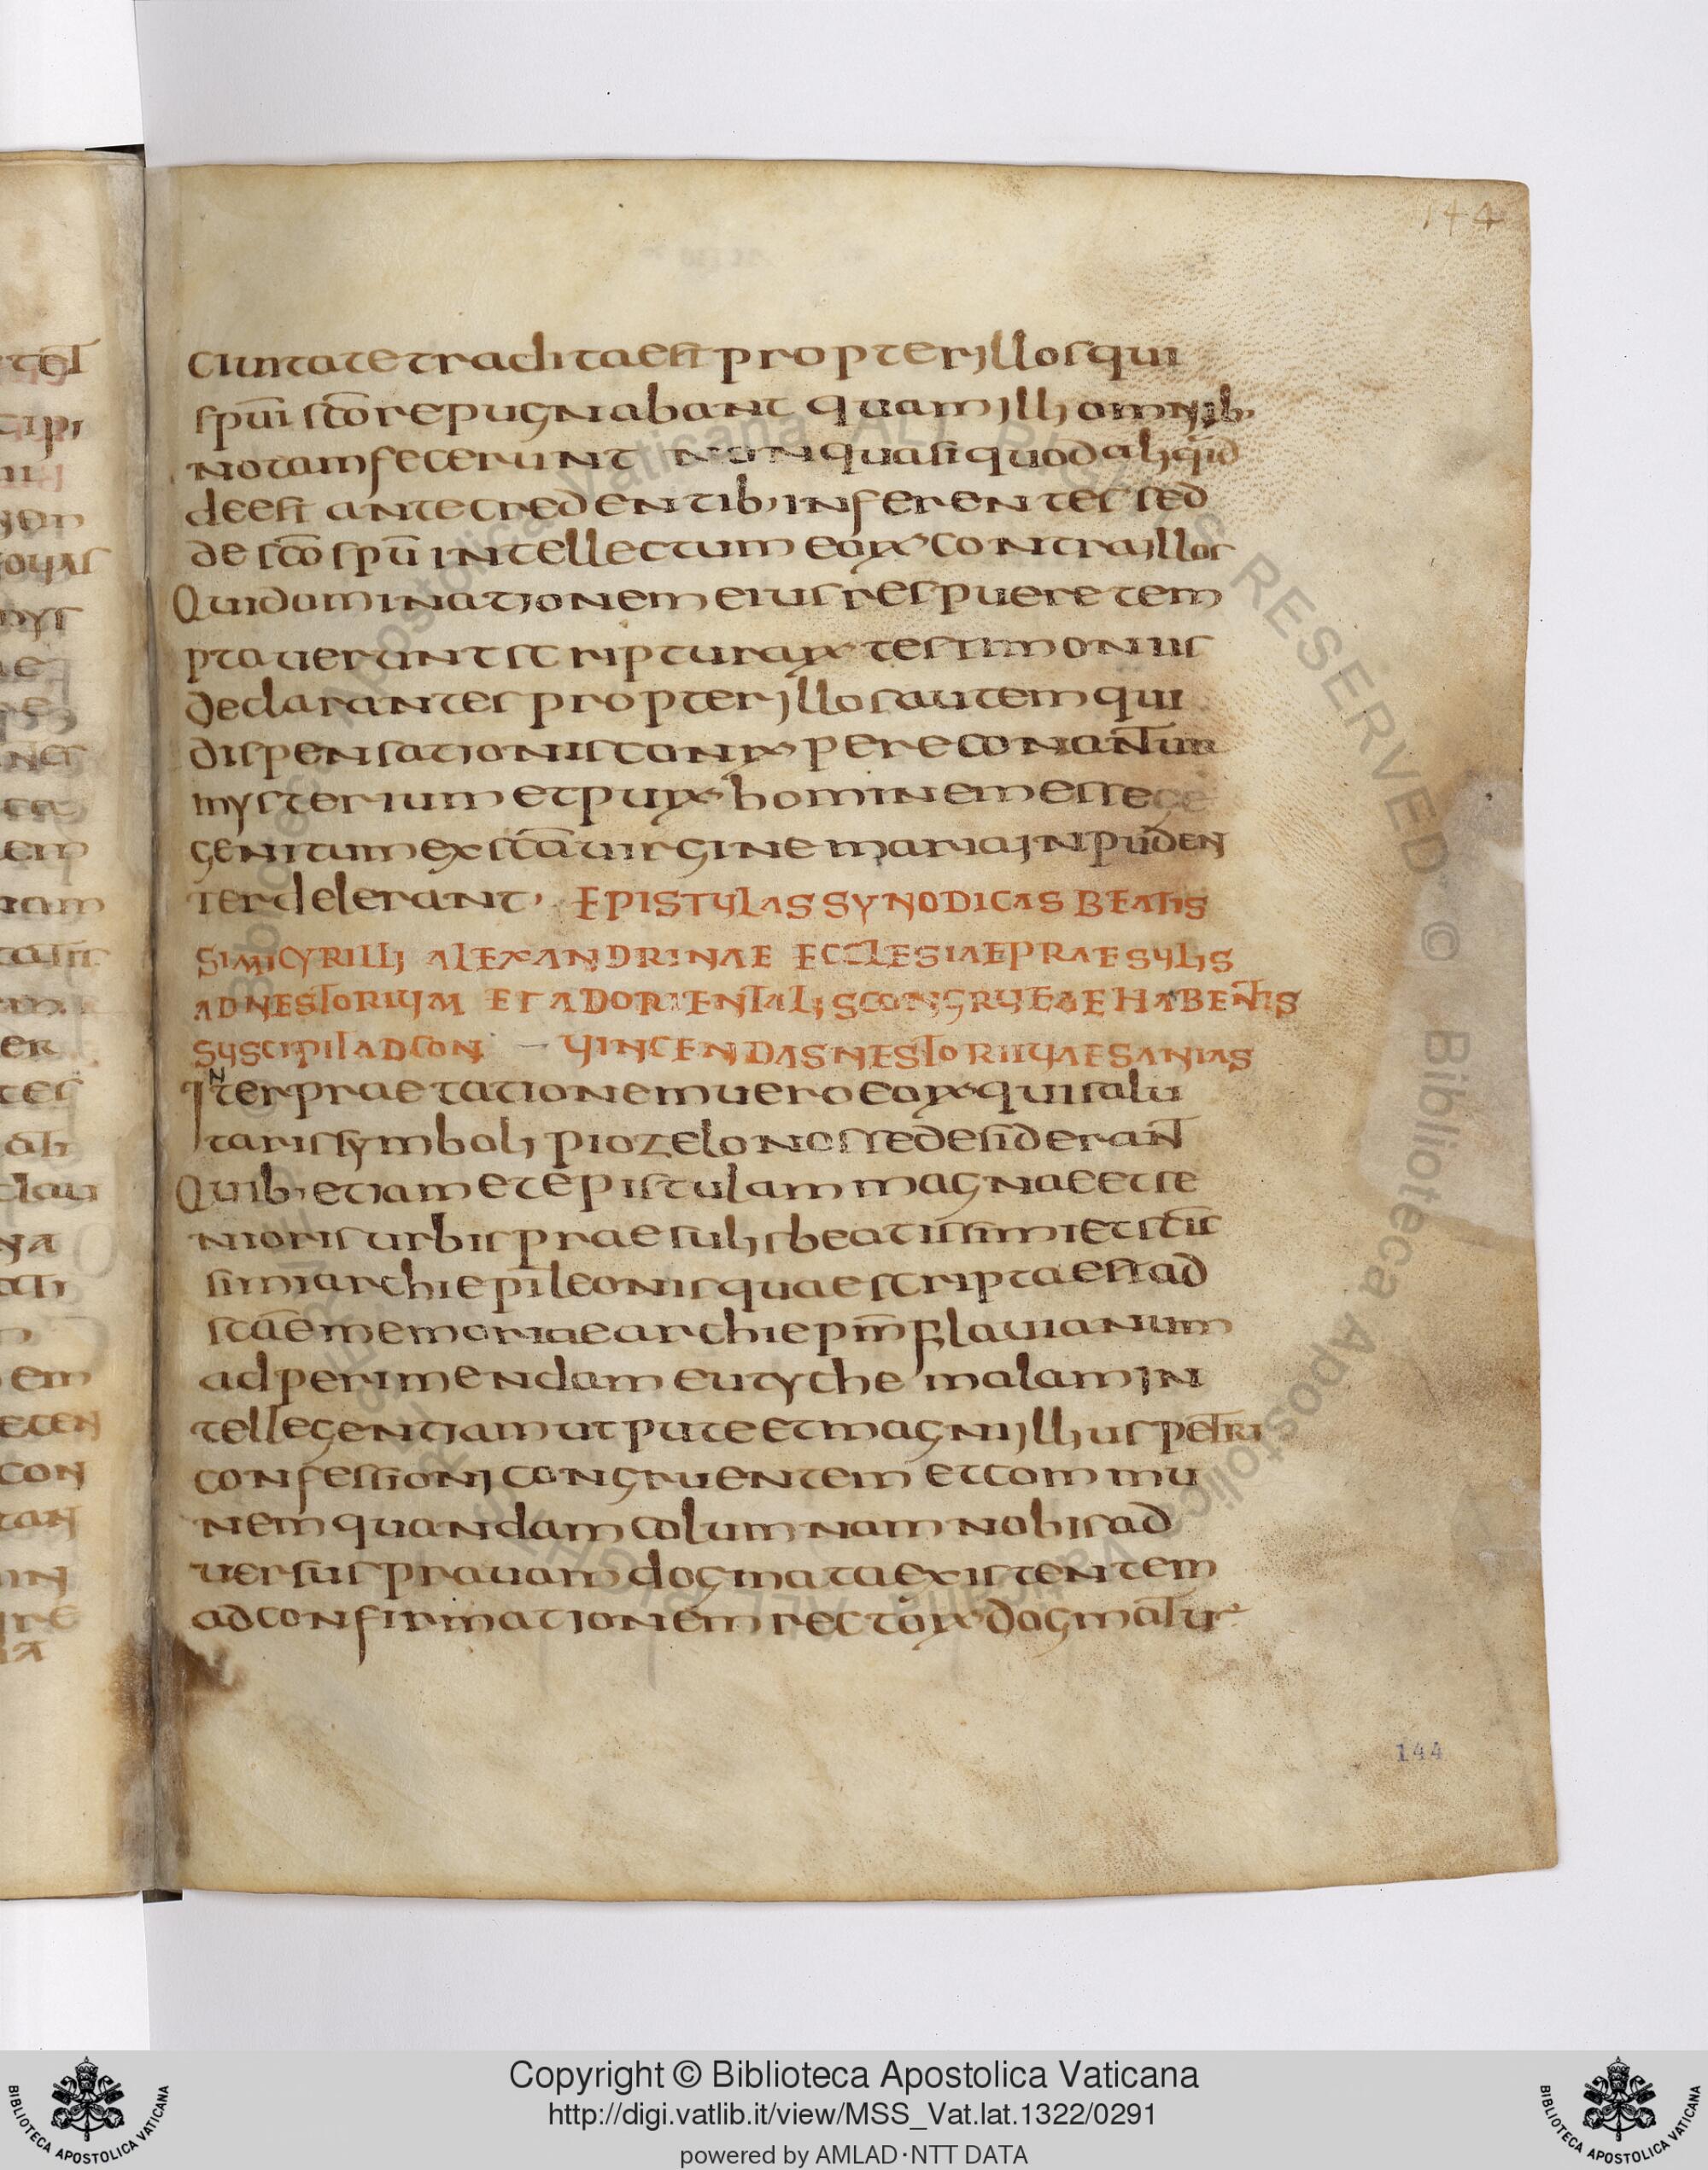 144
ciuitate tradita est propter illos qui
spūi sc̄o repugnabant quam illi omnib,
notam fecerunt non quasi quod aliquid
deest antecredentib, inferentes sed
de sc̄o spū intellectum eorꝝ contra illos
Qui dominationem eius respuere tem
ptauerunt scripturarꝝ testimoniis
declarantes propter illos autem qui
dispensationis conꝝ pere conant̄ur
mysterium et purꝝ hominem esse ge
genitum ex sc̄a uirgine maria inpuden
ter delerant, EPISTULAS SYNODICAS BEATIS
SIMI CYRILLI ALEXANDRINAE ECCLESIAE PRAESULIS
AD NESTORIUM ET AD ORIENTALIS CONGRUE HABENTIS
SUSCIPIT AD CON — UINCENDAS NESTORII UAESANIAS
Interpraetationem uero eorꝝ qui salu
taris symboli pio zelo nosse desiderant̄
Quib, etiam et epistulam magnae et se
nioris urbis praesulis beatissimi et sc̄is
simi archiepī leonis quae scripta est ad
sc̄ae memoriae archiepm̄ flauianum
ad perimendam eutyche malam in
tellegentiam ut pute et magni illius petri
confessioni congruentem et commu
nem quandam columnam nobis ad
uersus prauam dogmata existentem
ad confirmationem rectorꝝ dogmatur
144
Copyright © Biblioteca Apostolica Vaticana
http://digi.vatlib.it/view/MSS_Vat.lat.1322/0291
powered by AMLAD·NTT DATA
BIBLIOTECA APOSTOLICA VATICANA
BIBLIOTECA APOSTOLICA VATICANA